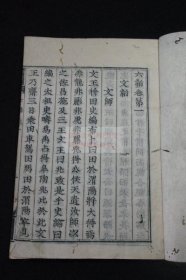 六韜卷第一
文韜
文師
文王將田史編布卜曰田於渭陽將大得焉
非龍非彲非虎非羆兆得公侯天遺汝師以
之佐昌施及三王文王曰兆致是乎史編曰
編之太祖史疇為禹占得皋陶兆比於此文
王乃齋三日乘田車駕田馬田於渭陽卒見